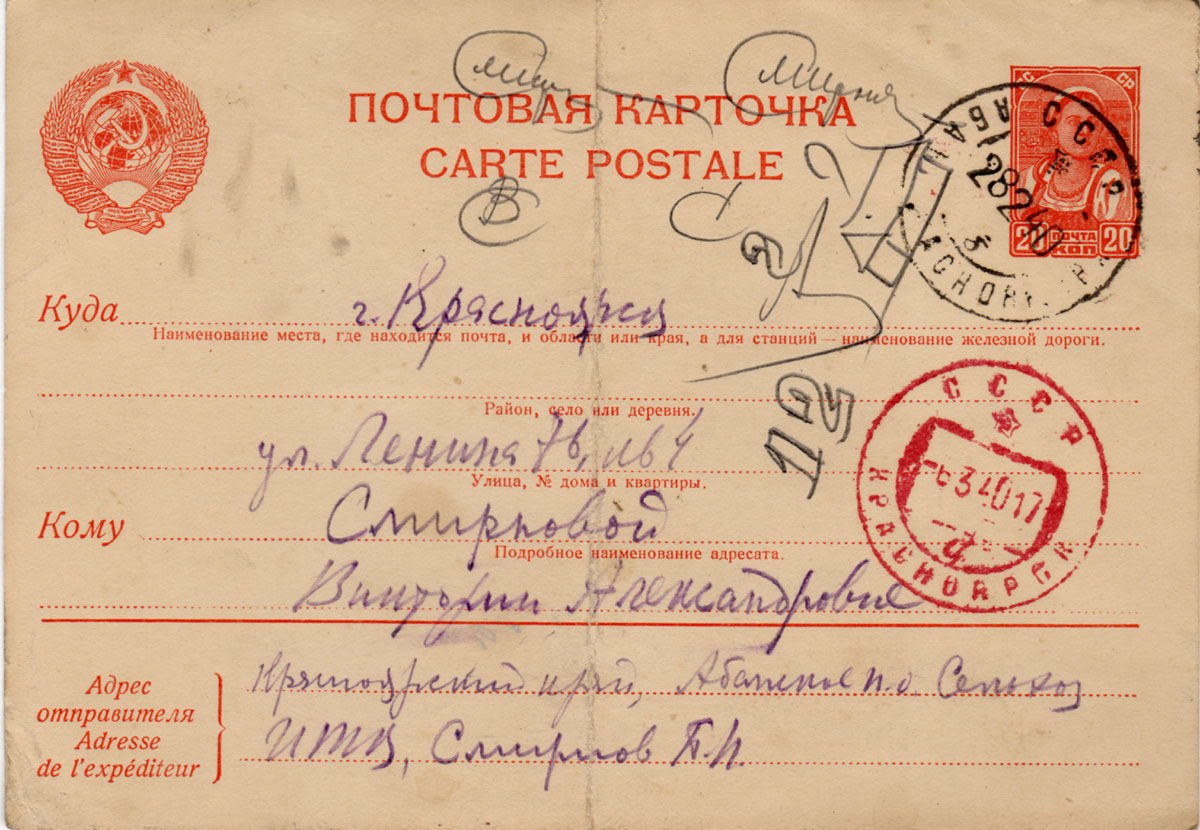 ПОЧТОВАЯ КАРТОЧКА
CARTE POSTALE
С СР
20 ПОЧТА 20
КОП
СССР АБАН
28 2 40
В С
Куда г. Красноярск
Наименование места, где находится почта, и области или края, а для станций — наименование железной дороги.
Район, село или деревня.
ул. Ленина 76,
Улица, № дома и квартиры.
112
СССР
-6 3 40 17
КРАСНОЯРСК
Кому Смирновой
Подробное наименование адресата.
Виктории Александровне
Адрес
отправителя
Adresse
de l'expéditeur
Красноярский край, Абанское п.о. Сельхоз
ИТЦ, Смирнов П.И.